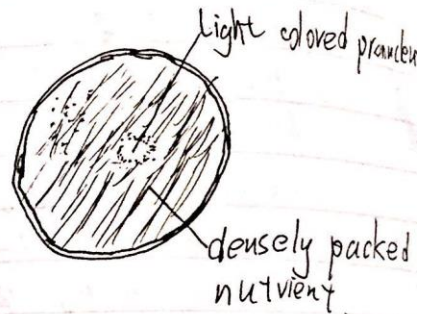 light colored
densely packed
nutrient